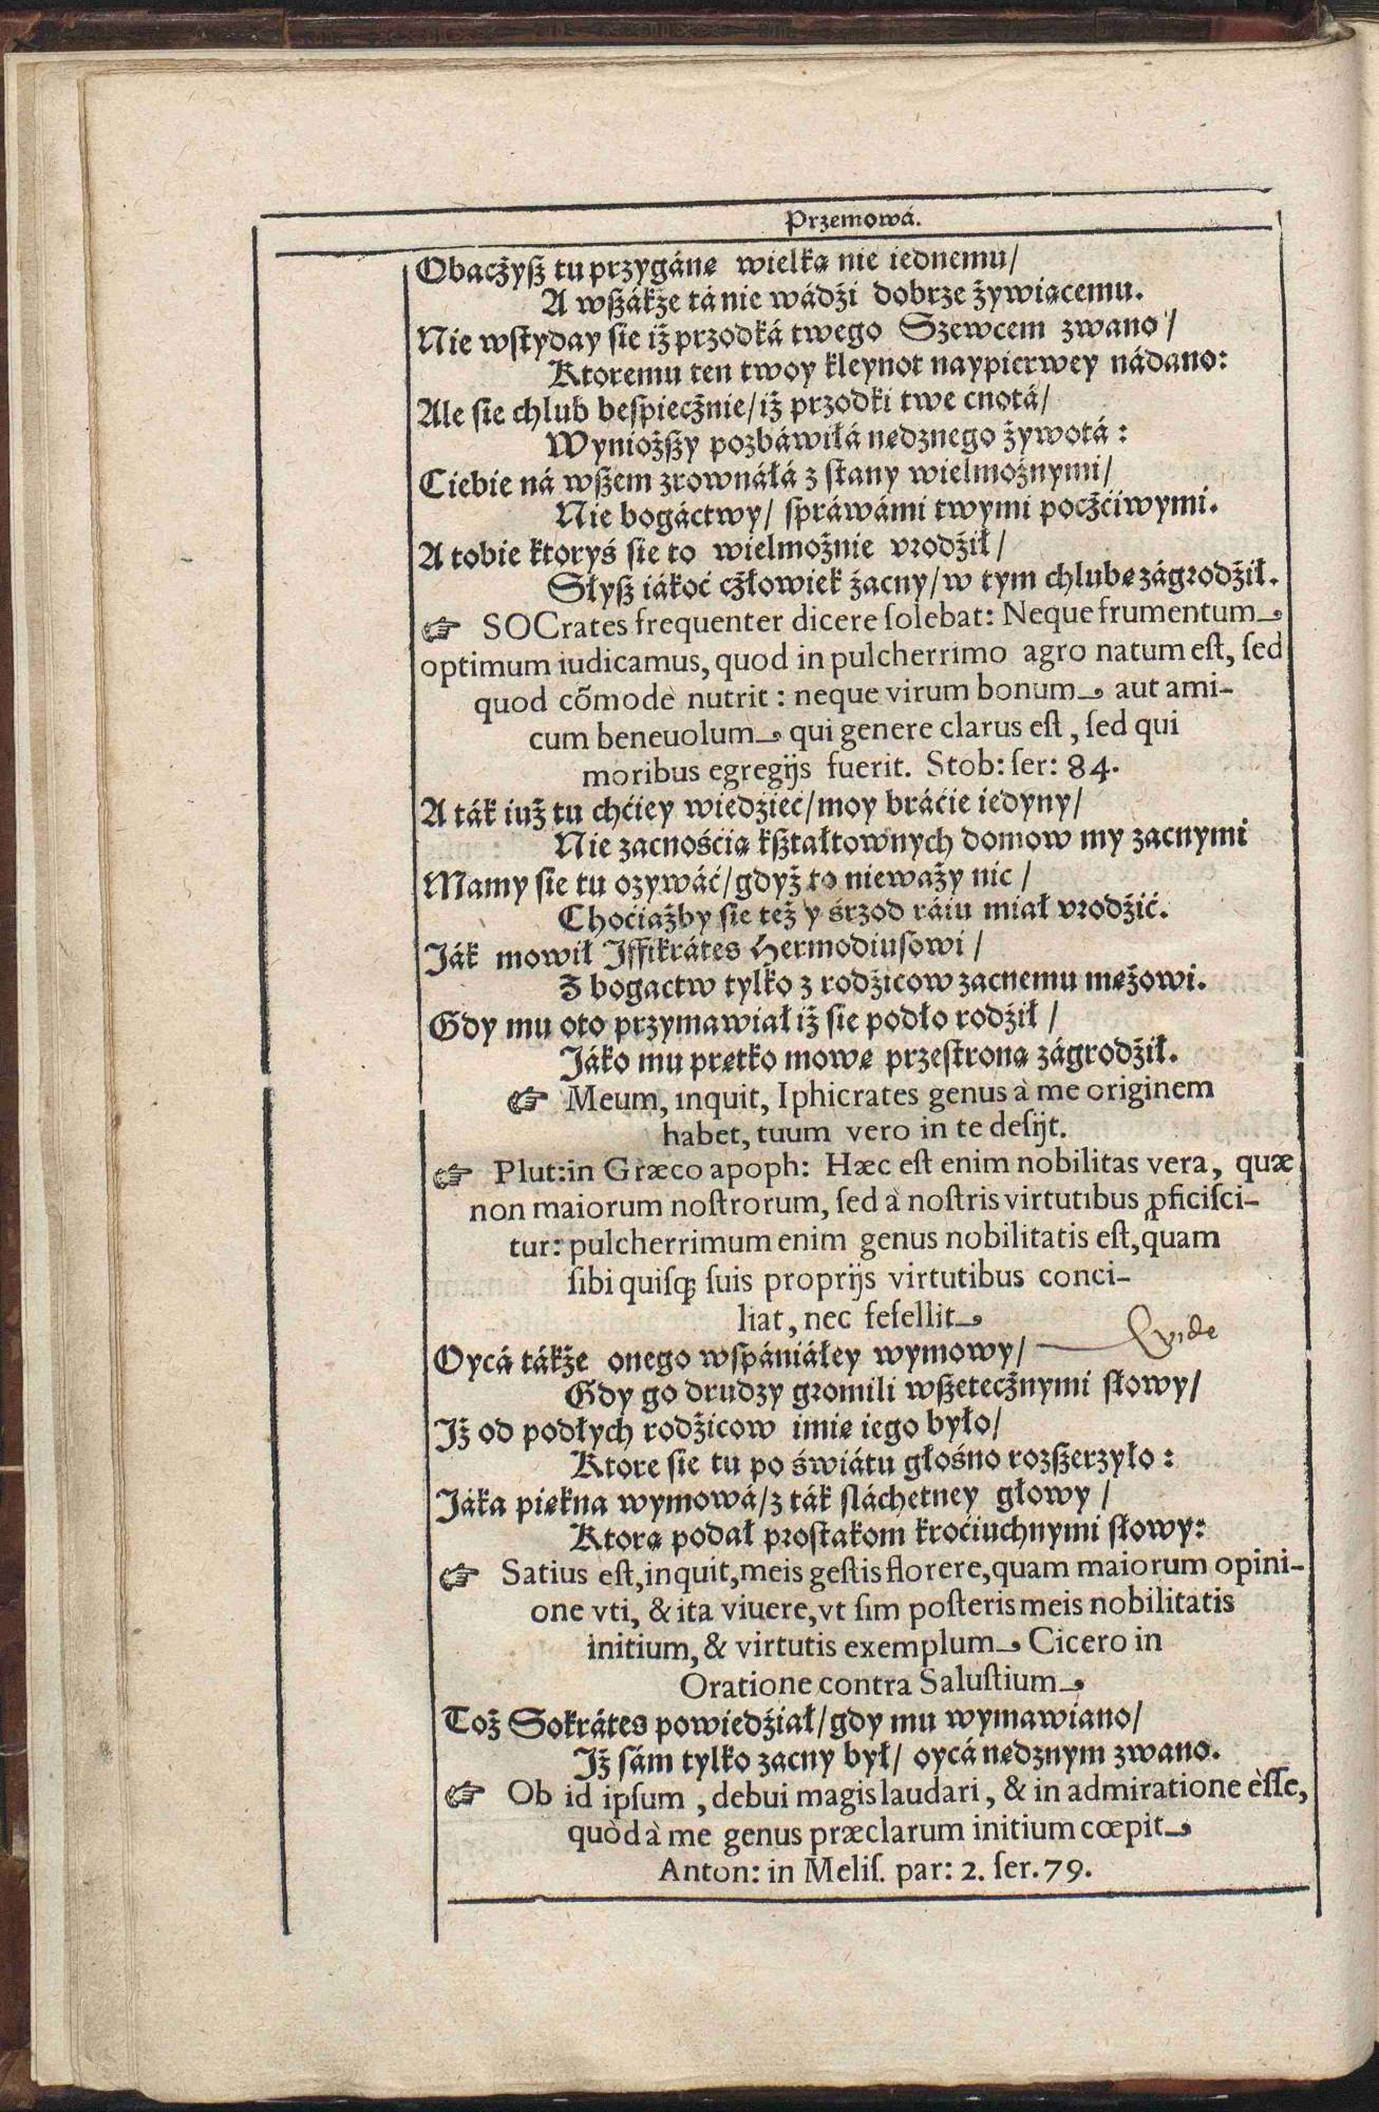 Przemowá.
Obaczyſz tu przygánę wielką nie iednemu/
A wſzákże tá nie wádźi dobrze żywiącemu.
Nie wſtyday ſie iż przodká twego Szewcem zwano/
Ktoremu ten twoy kleynot naypierwey nádano:
Ale ſie chlub beſpiecżnie/iż przodki twe cnotá/
Wynioższy pozbáwiłá nędznego żywotá:
Ciebie ná wſzem zrownáłá z ſtany wielmożnymi/
Nie bogáctwy/ ſpráwámi twymi pocżćiwymi.
A tobie ktoryś ſie to wielmożnie vrodźił/
Słyſz iákoć cżłowiek żacny/w tym chlubę zágrodźił.
☞ SOCrates frequenter dicere ſolebat: Neque frumentum
optimum iudicamus, quod in pulcherrimo agro natum eſt, ſed
quod cõmodè nutrit: neque virum bonum aut ami-
cum beneuolum qui genere clarus eſt, ſed qui
moribus egregijs fuerit. Stob: ſer: 84.
A ták iuż tu chćiey wiedźieć/moy bráćie iedyny/
Nie zacnośćią kſztałtownych domow my zacnymi
Mamy ſie tu ozywáć/gdyż to nieważy nic/
Choćiażby ſie też y śrzod ráiu miał vrodźić.
Ják mowił Jffikrátes Hermodiuſowi/
Z bogactw tylko z rodźicow zacnemu mężowi.
Gdy mu oto przymawiał iż ſie podło rodźił/
Jáko mu prętko mowę przeſtroną zágrodźił.
☞ Meum, inquit, Iphicrates genus à me originem
habet, tuum vero in te deſijt.
☞ Plut: in Græco apoph: Hæc eſt enim nobilitas vera, quæ
non maiorum noſtrorum, ſed à noſtris virtutibus ꝓficiſci-
tur: pulcherrimum enim genus nobilitatis eſt, quam
ſibi quiſq; ſuis proprijs virtutibus conci-
liat, nec fefellit
vide
Oycá tákże onego wſpániáłey wymowy/
Gdy go drudzy gromili wſzetecżnymi ſłowy/
Jż od podłych rodźicow imię iego było/
Ktore ſie tu po świátu głośno rozſzerzyło:
Jáka piękna wymowá/z ták ſláchetney głowy/
Ktorą podał proſtakom kroćiuchnymi ſłowy:
☞ Satius eſt, inquit, meis geſtis florere, quam maiorum opini-
one vti, & ita viuere, vt ſim poſteris meis nobilitatis
initium, & virtutis exemplum Cicero in
Oratione contra Saluſtium
Toż Sokrátes powiedźiał/gdy mu wymawiano/
Jż ſám tylko zacny był/ oycá nędznym zwano.
☞ Ob id ipſum, debui magis laudari, & in admiratione èſſe,
quòd à me genus præclarum initium cœpit
Anton: in Meliſ. par: 2. ſer. 79.